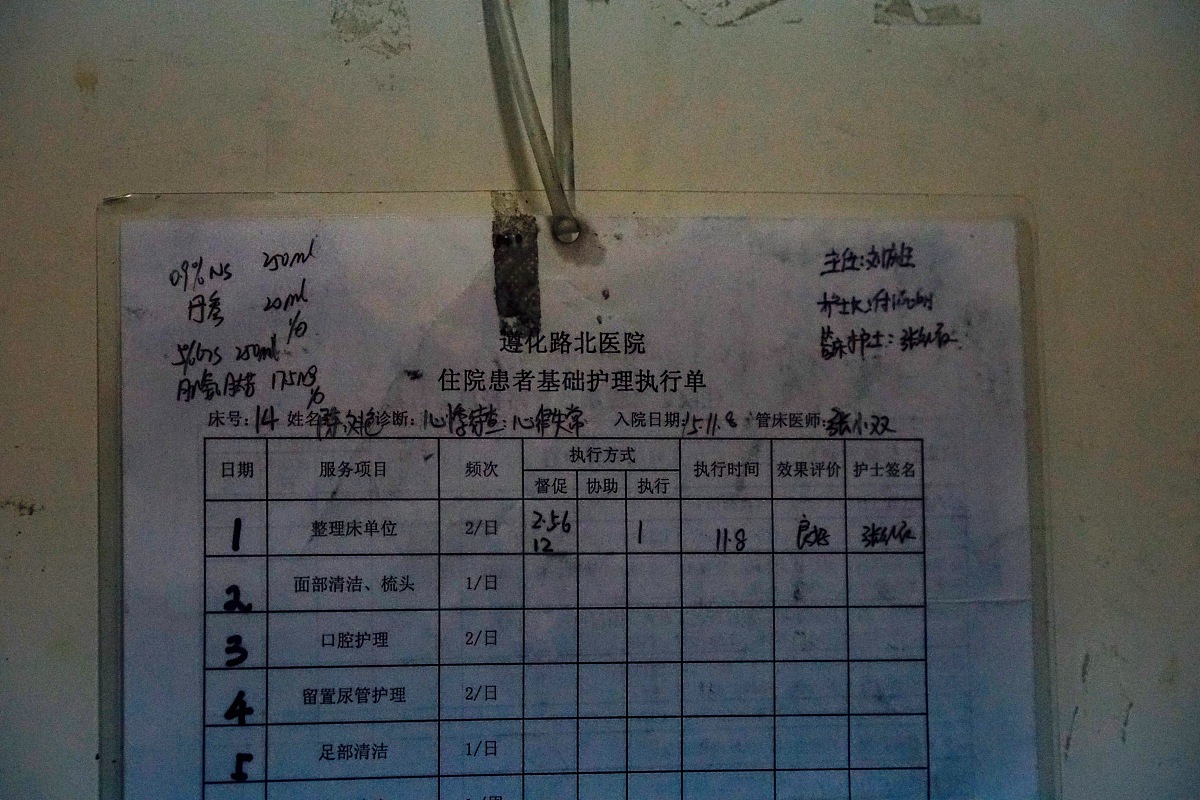 0.9% NS 250ml
丹参 20ml
1/日
5%GS 250ml
1/日
主任:刘
护士长:付
管床护士:张红欣
遵化路北医院
住院患者基础护理执行单
床号:14 姓名 诊断:心悸待查:心律失常 入院日期:15.11.8 管床医师:张小双
日期 服务项目 频次 执行方式 执行时间 效果评价 护士签名
督促 协助 执行
1 整理床单位 2/日 2.56 12 1 11.8 良好 张红欣
2 面部清洁、梳头 1/日
3 口腔护理 2/日
4 留置尿管护理 2/日
5 足部清洁 1/日